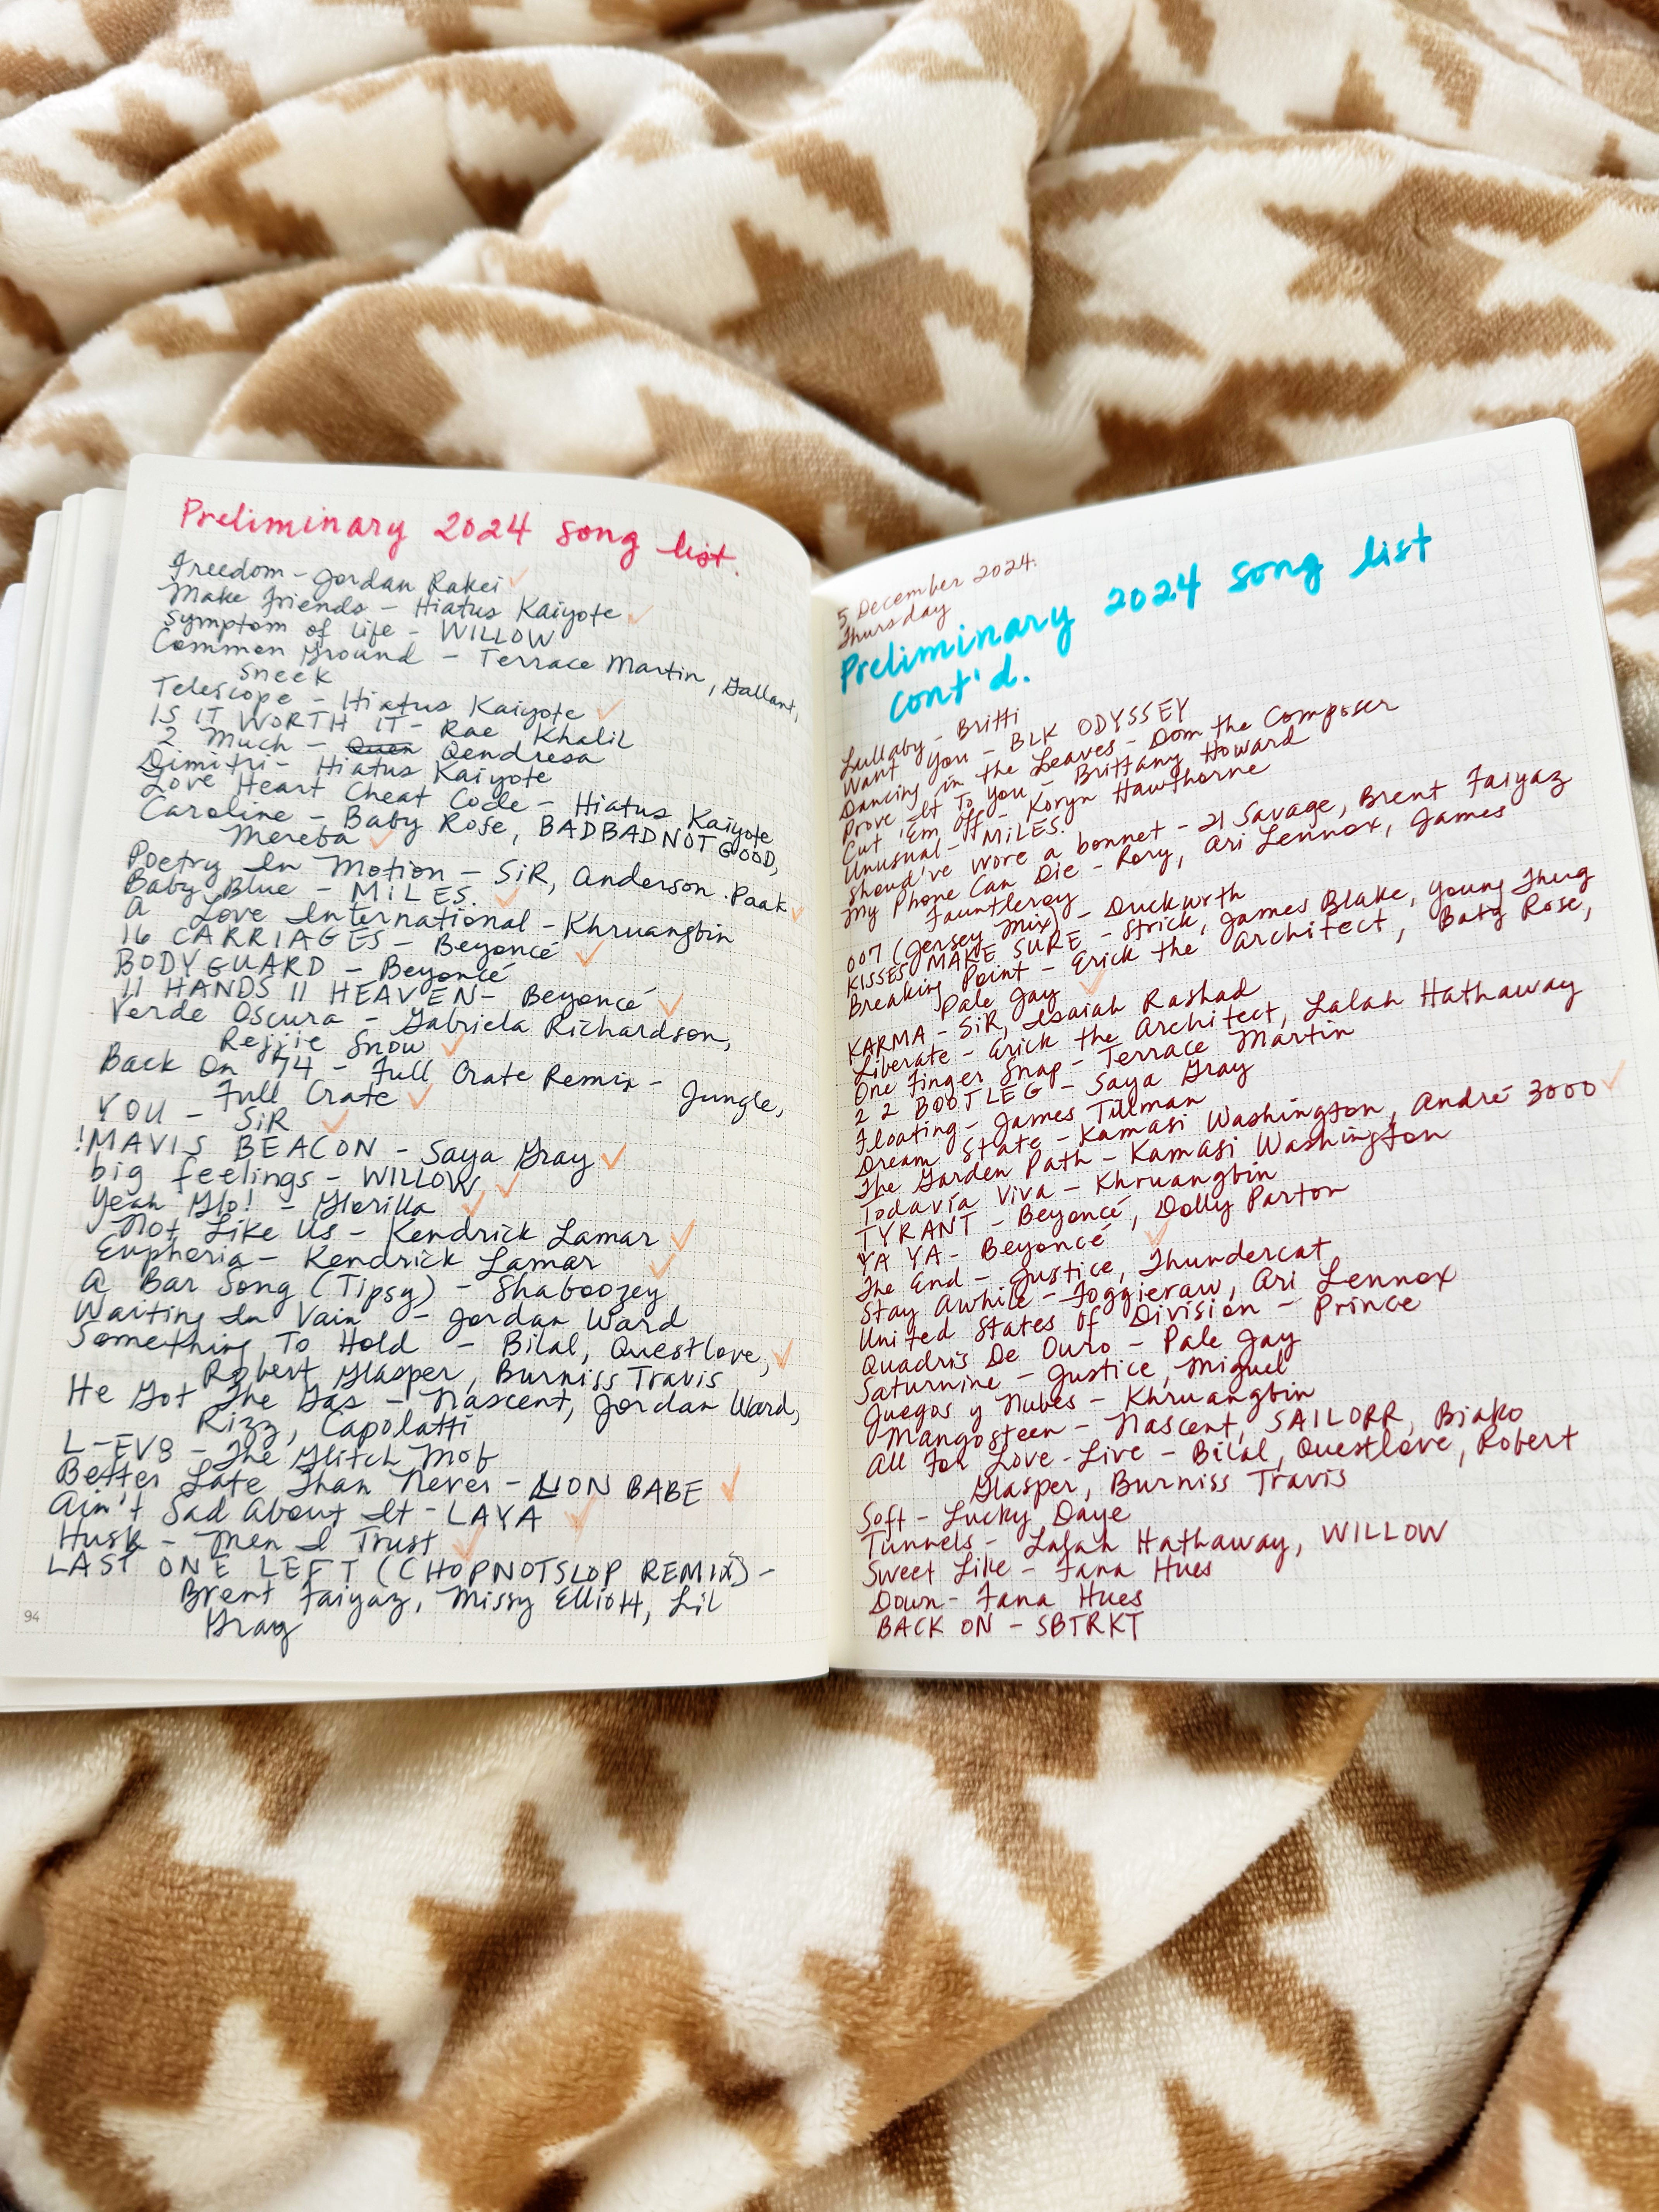 Preliminary 2024 song list.
Freedom - Jordan Rakei ✓
Make Friends - Hiatus Kaiyote ✓
symptom of life - WILLOW
Common Ground - Terrace Martin, Gallant,
sneek
Telescope - Hiatus Kaiyote ✓
IS IT WORTH IT - Rae Khalil
2 Much - Quen Qendresa
Dimitri - Hiatus Kaiyote
Love Heart Cheat Code - Hiatus Kaiyote
Caroline - Baby Rose, BADBADNOTGOOD,
Mereba ✓
Poetry In Motion - SiR, Anderson .Paak ✓
Baby Blue - MiLES. ✓
A Love International - Khruangbin
16 CARRIAGES - Beyoncé ✓
BODYGUARD - Beyoncé
II HANDS II HEAVEN - Beyoncé ✓
Verde Oscura - Gabriela Richardson,
Rejjie Snow ✓
Back On 74 - Full Crate Remix - Jungle,
Full Crate ✓
YOU - SiR ✓
!MAVIS BEACON - Saya Gray ✓
big feelings - WILLOW ✓
Yeah Glo! - Glorilla ✓
Not Like Us - Kendrick Lamar ✓
Euphoria - Kendrick Lamar ✓
A Bar Song (Tipsy) - Shaboozey
Waiting In Vain - Jordan Ward
Something To Hold - Bilal, Questlove, ✓
Robert Glasper, Burniss Travis
He Got The Gas - Nascent, Jordan Ward,
Rizz, Capolatti
L-EV8 - The Glitch Mob
Better Late Than Never - LION BABE ✓
Ain't Sad About It - LAYA ✓
Husk - Men I Trust ✓
LAST ONE LEFT (CHOPNOTSLOP REMIX) -
Brent Faiyaz, Missy Elliott, Lil
Gray
94
5 December 2024.
Thursday
Preliminary 2024 song list
cont'd.
Lullaby - Britti
Want You - BLK ODYSSEY
Dancing in the Leaves - Dom the Composer
Prove It To You - Brittany Howard
Cut Em Off - Koryn Hawthorne
Unusual - MiLES.
should've wore a bonnet - 21 Savage, Brent Faiyaz
My Phone Can Die - Rory, Ari Lennox, James
Fauntleroy
007 (Jersey Mix) - Duckwrth
KISSES MAKE SURE - Strick, James Blake, Young Thug
Breaking Point - Erick the Architect, Baby Rose,
Pale Jay ✓
KARMA - SiR, Isaiah Rashad
Liberate - Erick the Architect, Lalah Hathaway
One Finger Snap - Terrace Martin
2 2 BOOTLEG - Saya Gray
Floating - James Tillman
Dream State - Kamasi Washington, André 3000 ✓
The Garden Path - Kamasi Washington
Todavía Viva - Khruangbin
TYRANT - Beyoncé, Dolly Parton
YA YA - Beyoncé ✓
The End - Justice, Thundercat
Stay Awhile - Foggieraw, Ari Lennox
United States Of Division - Prince
Quadris De Ouro - Pale Jay
Saturnine - Justice, Miguel
Juegos y Nubes - Khruangbin
Mangosteen - Nascent, SAILORR, Biako
All For Love - Live - Bilal, Questlove, Robert
Glasper, Burniss Travis
Soft - Lucky Daye
Tunnels - Lalah Hathaway, WILLOW
Sweet Like - Fana Hues
Down - Fana Hues
BACK ON - SBTRKT